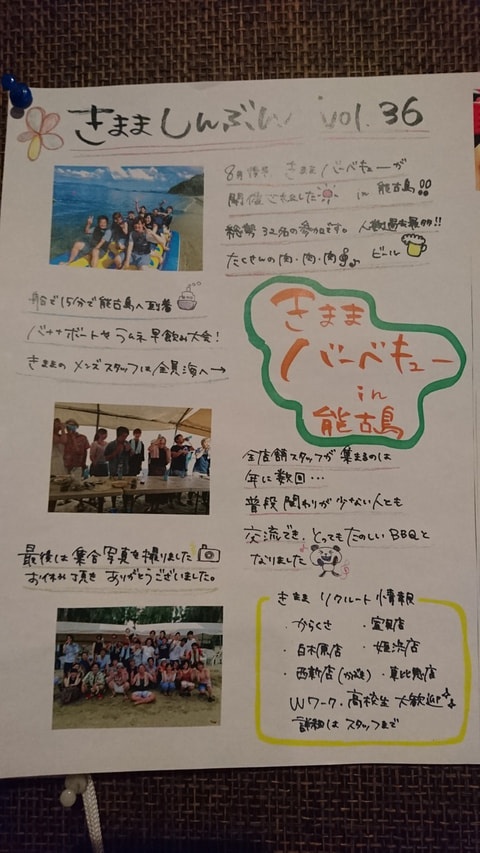 きまましんぶん vol.36
8月後半 きままバーベキューが
開催されました in 能古島!!
総勢32名の参加です。人数過去最多!!
たくさんの肉・肉・肉 ビール
船で15分で能古島へ到着
バナナボートやラムネ早飲み大会!
きままのメンズスタッフは全員海へ→
きまま
バーベキュー
in
能古島
全店舗スタッフが集まるのは
年に数回…
普段関わりが少ない人とも
交流でき、とってもたのしいBBQと
なりました
最後は集合写真を撮りました
お休み頂きありがとうございました。
きまま リクルート情報
・からくさ ・室見店
・白木原店 ・姪浜店
・西新店 ・恵比寿店
Wワーク・高校生大歓迎
詳細はスタッフまで